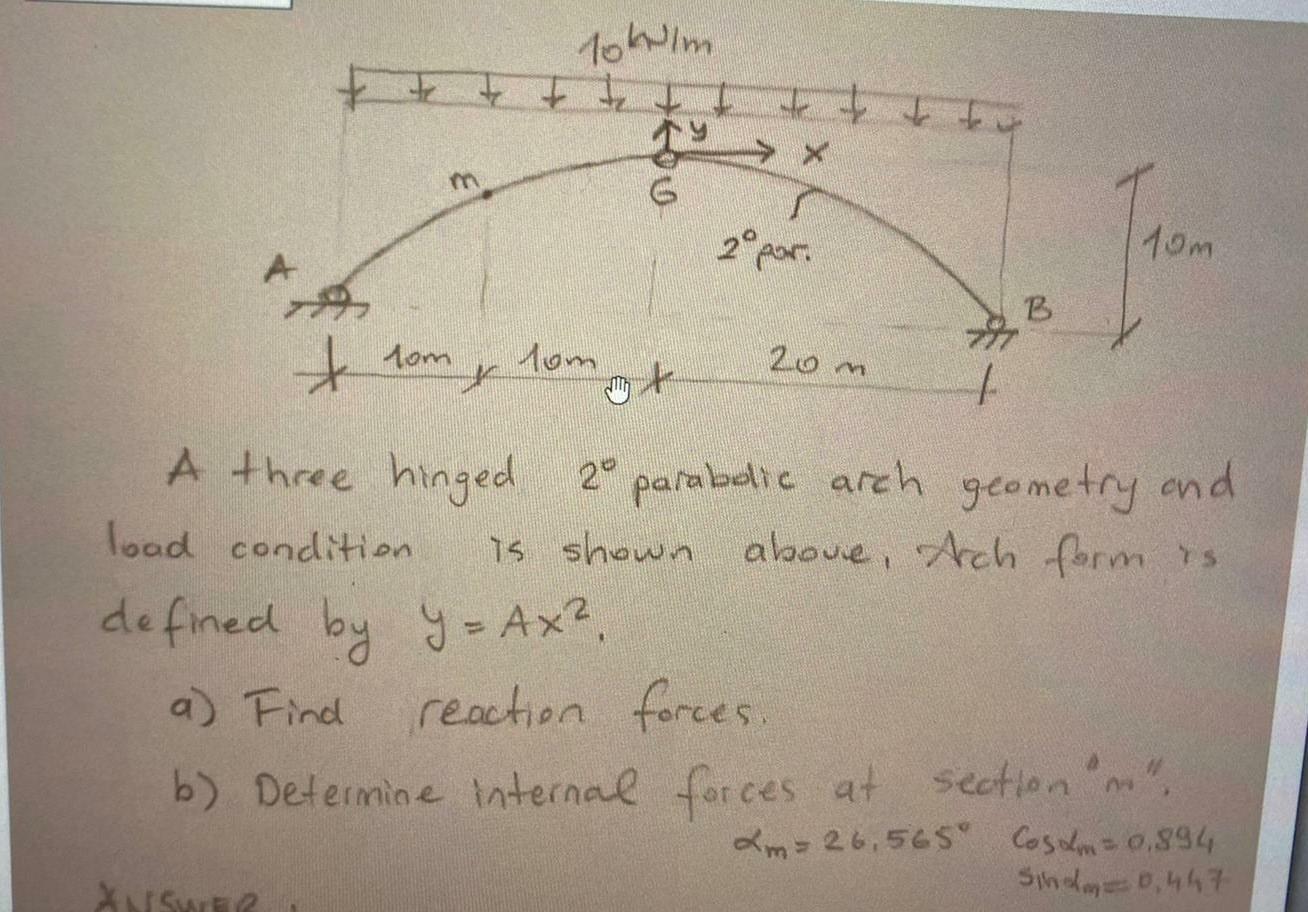 10 kN/m
y
x
m
G
2° par.
10m
A
B
10m 10m 20 m
A three hinged 2° parabolic arch geometry and
load condition is shown above, Arch form is
defined by y = Ax².
a) Find reaction forces.
b) Determine internal forces at section "m".
αm = 26,565° Cosαm = 0,894
Sinαm = 0,447
ANSWER: